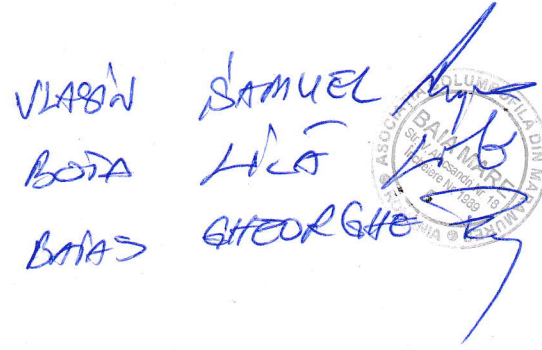 VLASÎN SAMUEL
BOTA LICĂ
BAIAS GHEORGHE
ASOCIAȚIA COLUMBOFILA DIN MARAMUREȘ
ROMANIA
BAIA MARE
Str. V. Alecsandri Nr. 18
1989